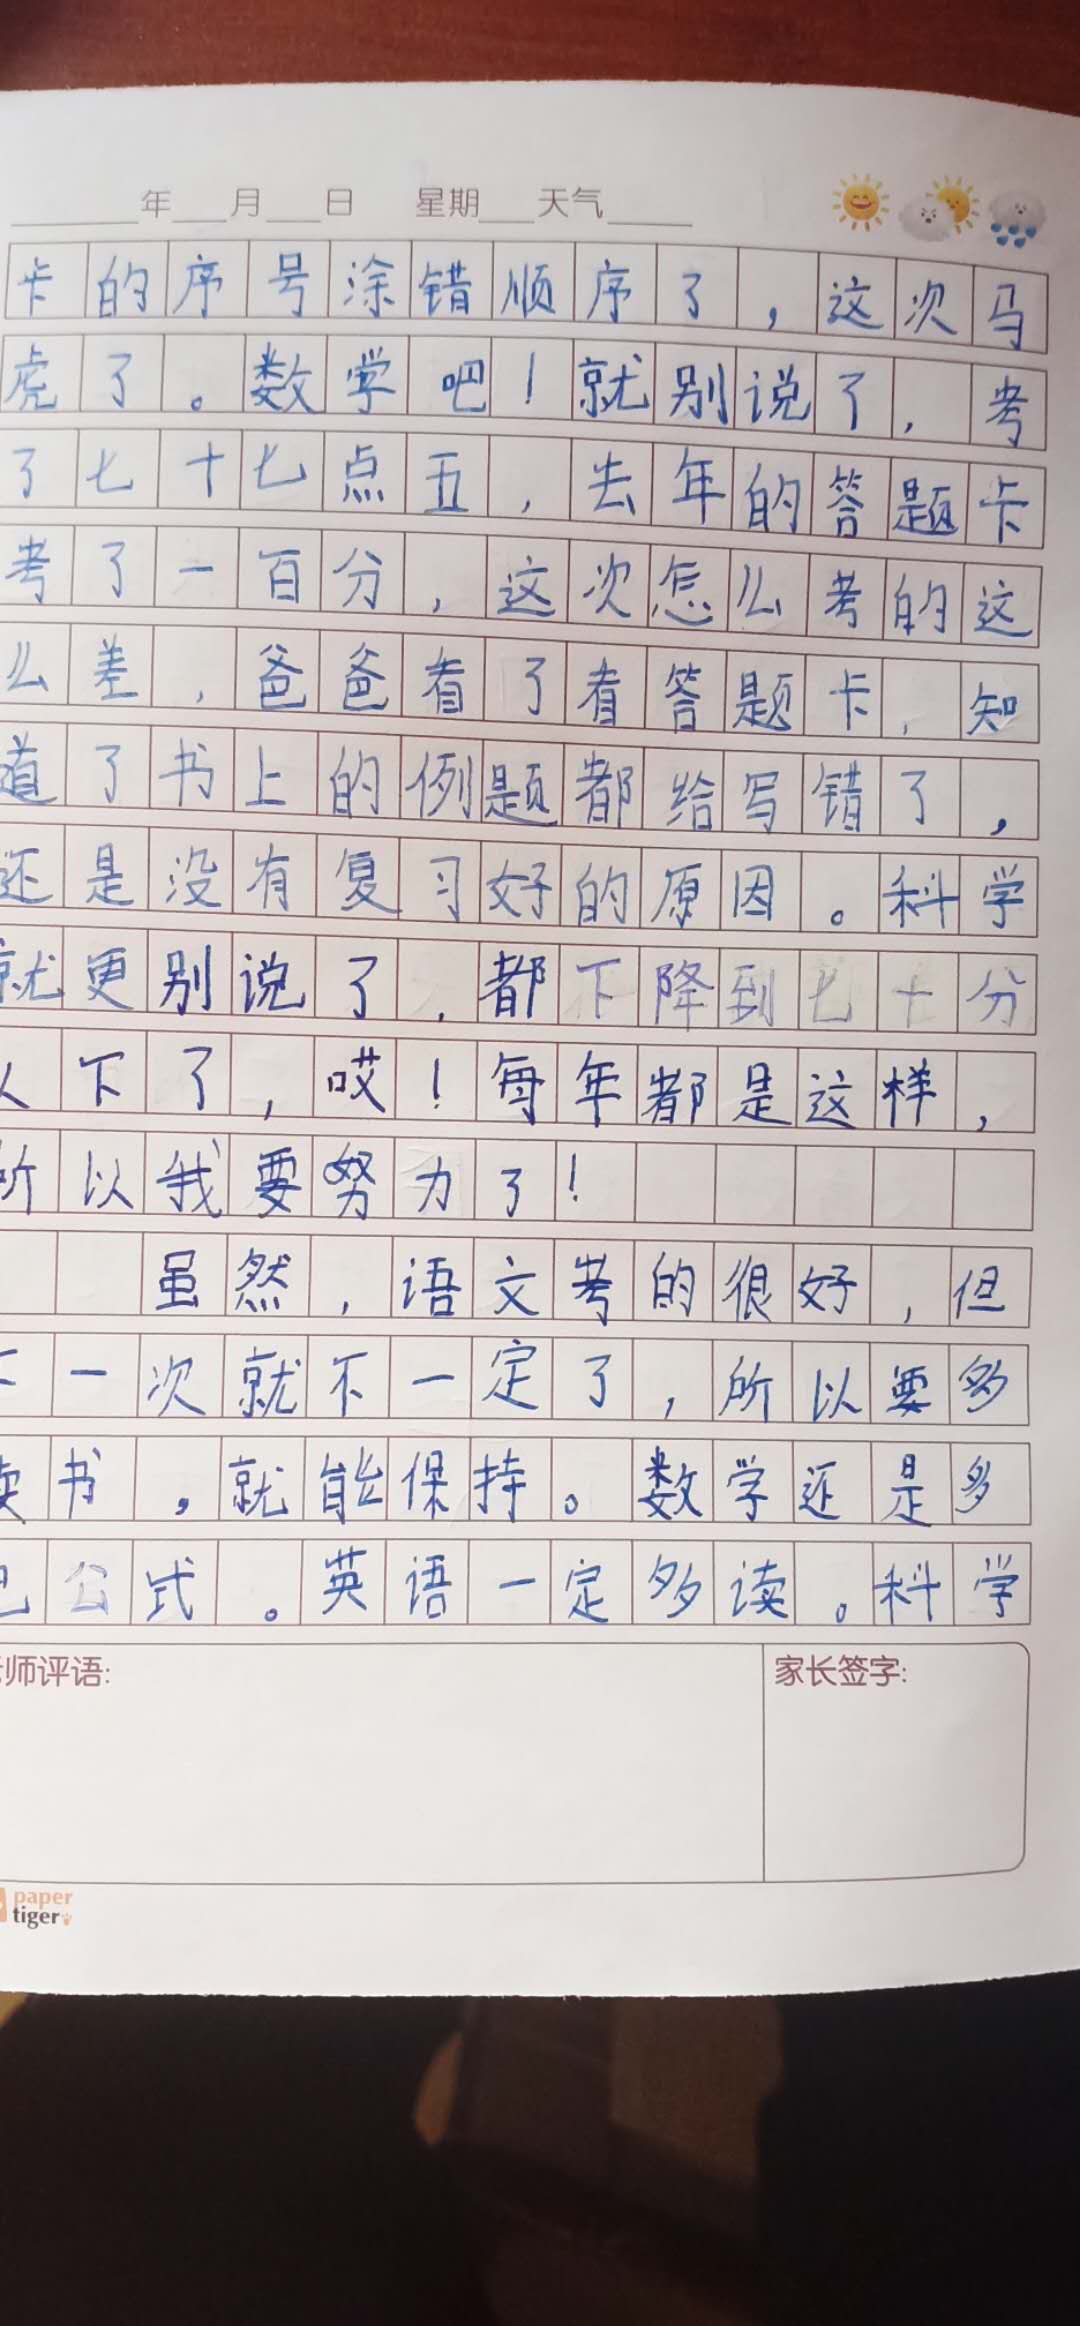 年 月 日 星期 天气
卡的序号涂错顺序了，这次马
虎了。数学吧！就别说了，考
了七十七点五，去年的答题卡
考了一百分，这次怎么考的这
么差，爸爸看了看答题卡，知
道了书上的例题都给写错了，
还是没有复习好的原因。科学
就更别说了，都下降到七十分
以下了，哎！每年都是这样，
所以我要努力了！
虽然，语文考的很好，但
下一次就不一定了，所以要多
读书，就能保持。数学还是多
公式。英语一定多读。科学
老师评语:
家长签字:
paper
tiger